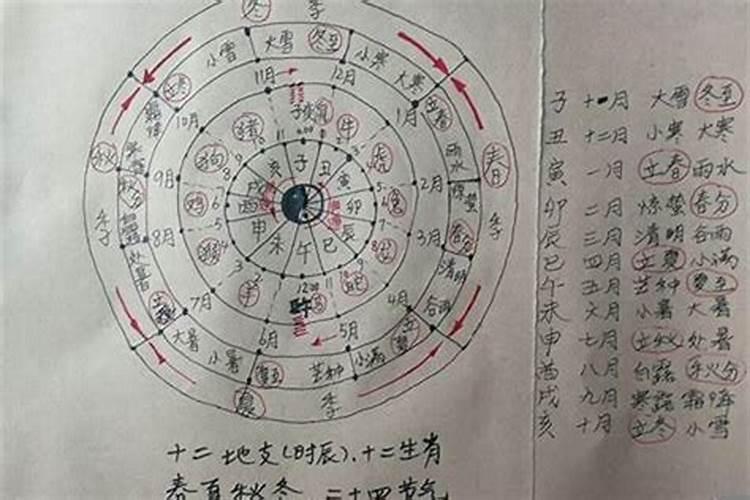 冬 季
小雪 大雪 冬至 小寒 大寒
立冬 立春
11月 12月
10月 1月
子 丑 寅 卯 辰 巳 午 未 申 酉 戌 亥
猪 牛 虎 兔 羊 鸡 狗
秋 季
春 季
秋分
9月 2月
雨水
惊蛰
8月 3月
春分
清明
处暑
谷雨
7月 4月
大暑 小暑 夏至 芒种 小满
6月 5月
夏 季
子 十一月 大雪 冬至
丑 十二月 小寒 大寒
寅 一月 立春 雨水
卯 二月 惊蛰 春分
辰 三月 清明 谷雨
巳 四月 立夏 小满
午 五月 芒种 夏至
未 六月 小暑 大暑
申 七月 立秋 处暑
酉 八月 白露 秋分
戌 九月 寒露 霜降
亥 十月 立冬 小雪
十二地支(时辰)、十二生肖
春夏秋冬 二十四节气